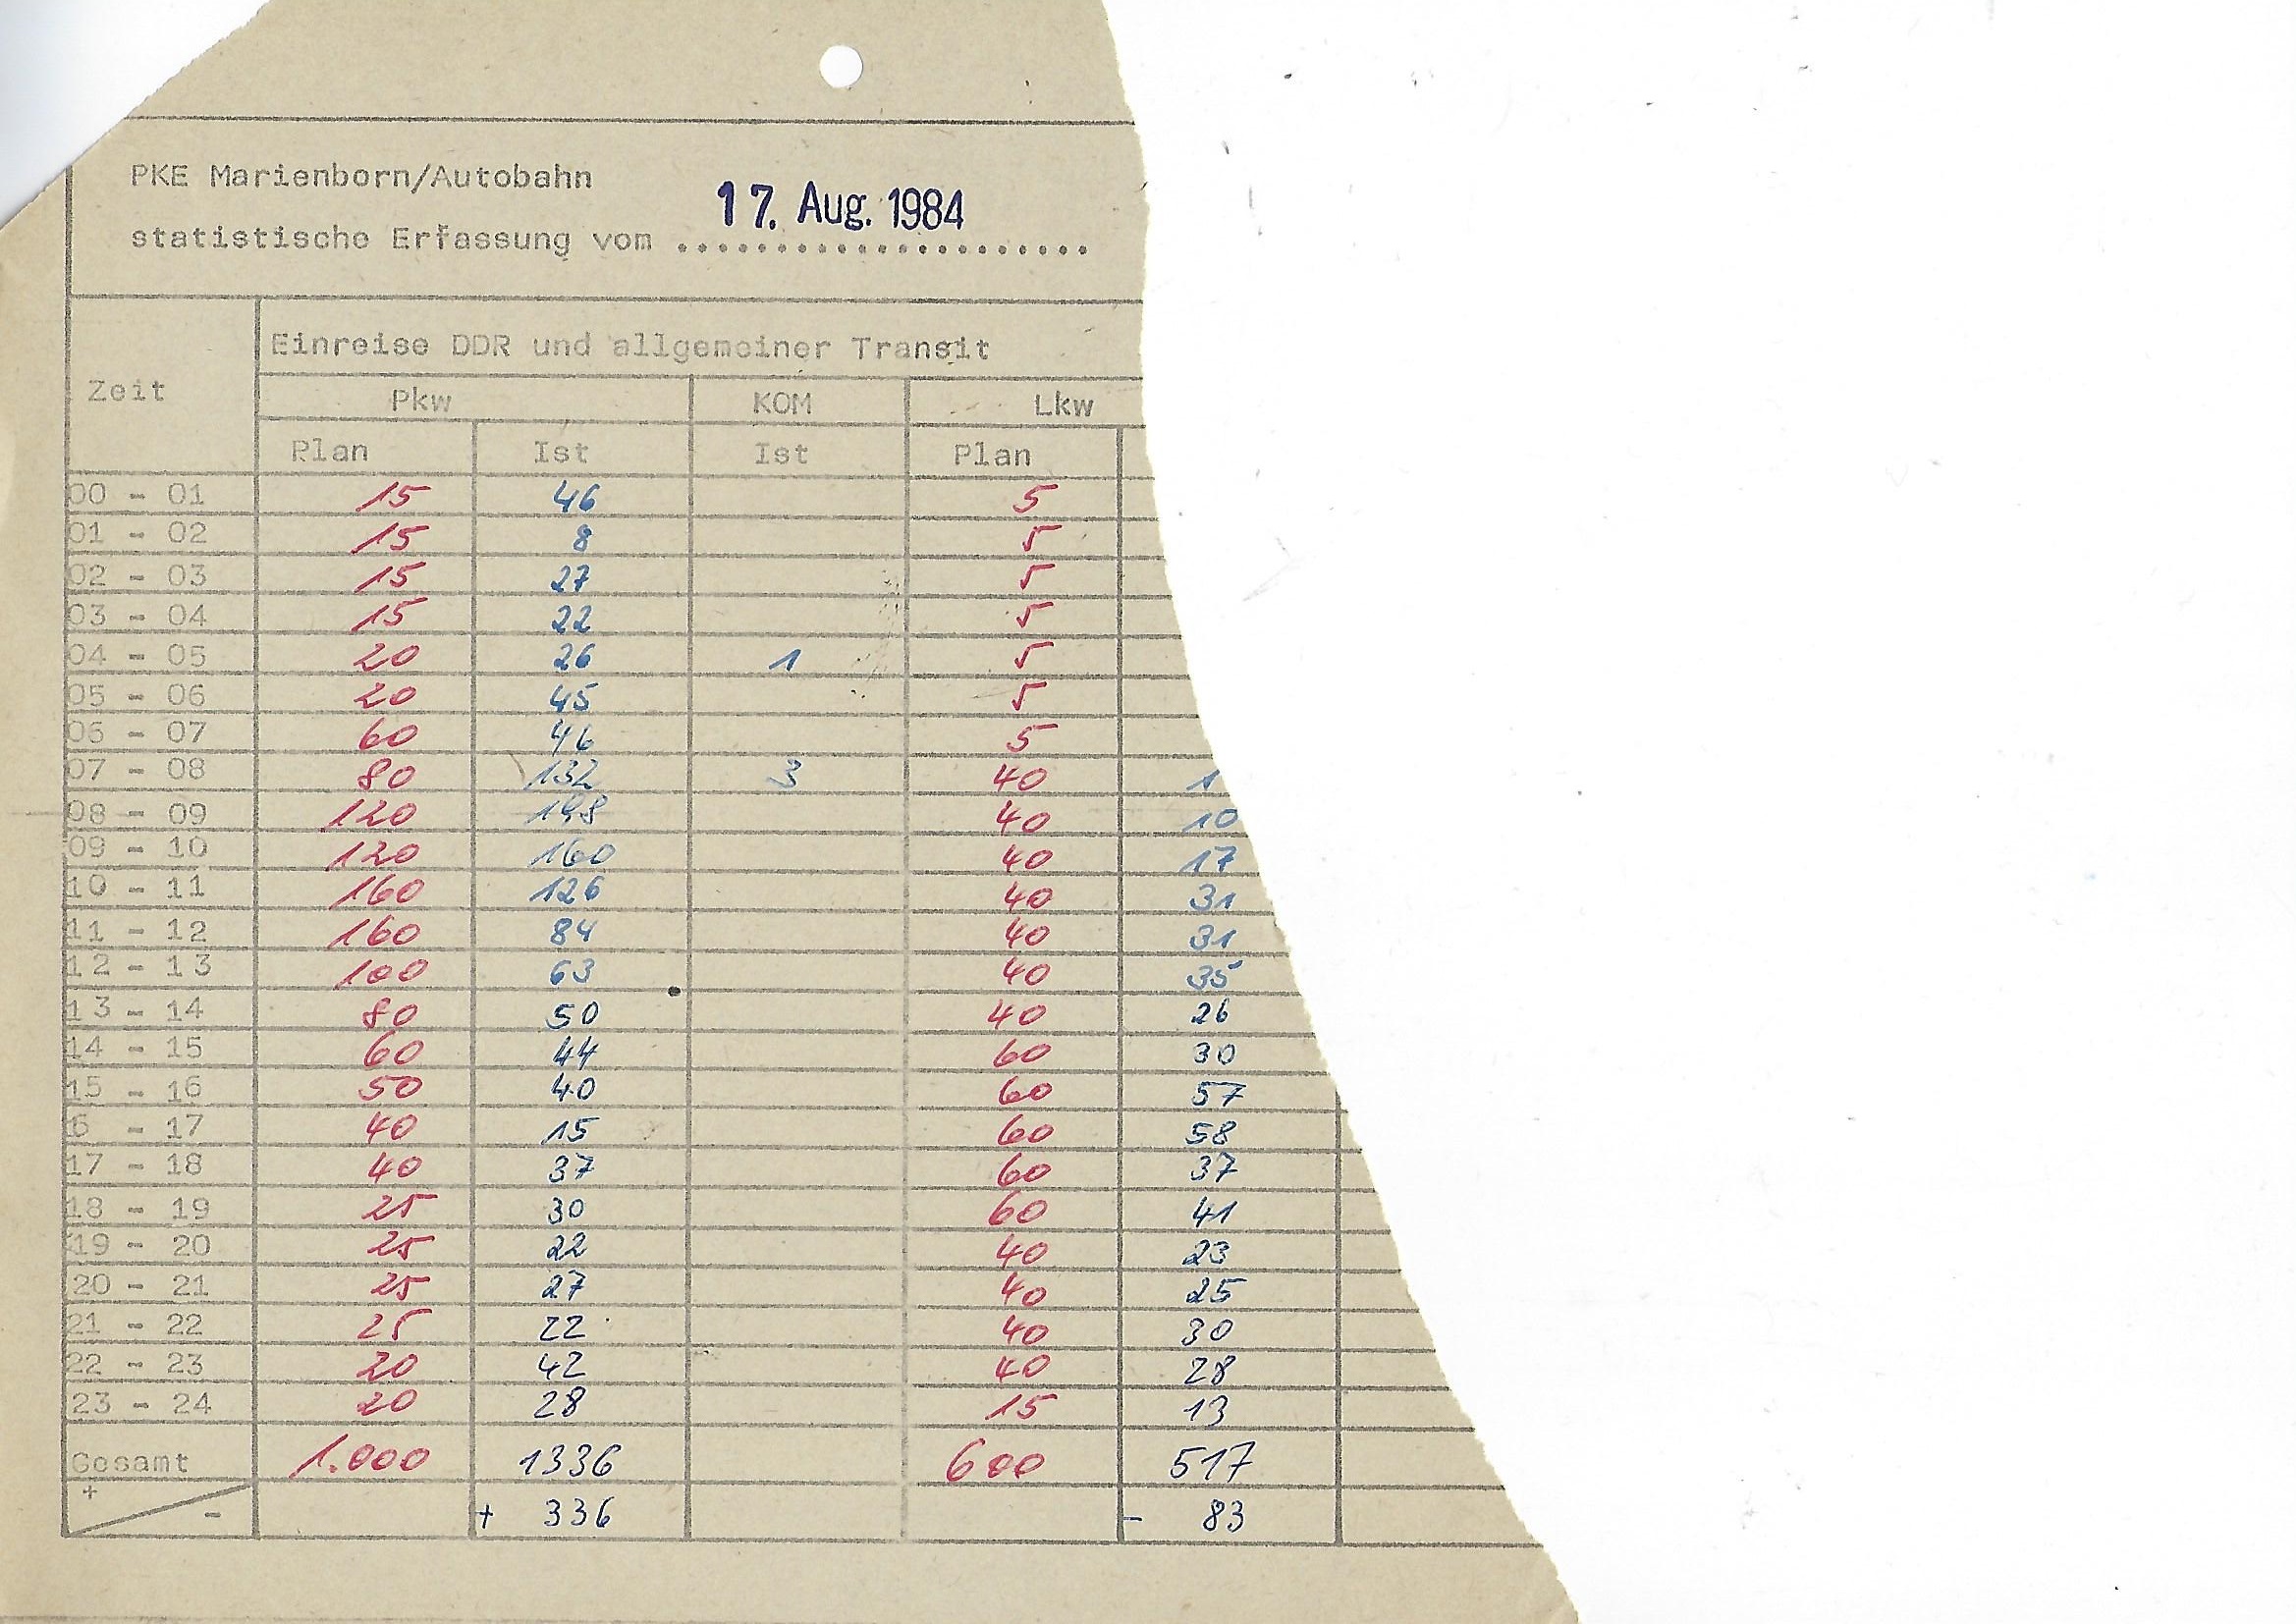 PKE Marienborn/Autobahn
17. Aug. 1984
statistische Erfassung vom ......................
Einreise DDR und allgemeiner Transit
Zeit
Pkw KOM Lkw
Plan Ist Ist Plan
00 - 01 15 46 5
01 - 02 15 8 5
02 - 03 15 27 5
03 - 04 15 22 5
04 - 05 20 26 1 5
05 - 06 20 45 5
06 - 07 60 46 5
07 - 08 80 132 3 40 1
08 - 09 120 40 10
09 - 10 120 160 40 17
10 - 11 160 126 40 31
11 - 12 160 84 40 31
12 - 13 100 63 40 35
13 - 14 80 50 40 26
14 - 15 60 44 60 30
15 - 16 50 40 60 57
6 - 17 40 15 60 58
17 - 18 40 37 60 37
18 - 19 25 30 60 41
19 - 20 25 22 40 23
20 - 21 25 27 40 25
21 - 22 25 22 40 30
22 - 23 20 42 40 28
23 - 24 20 28 15 13
Gesamt 1.000 1336 600 517
+ - + 336 - 83